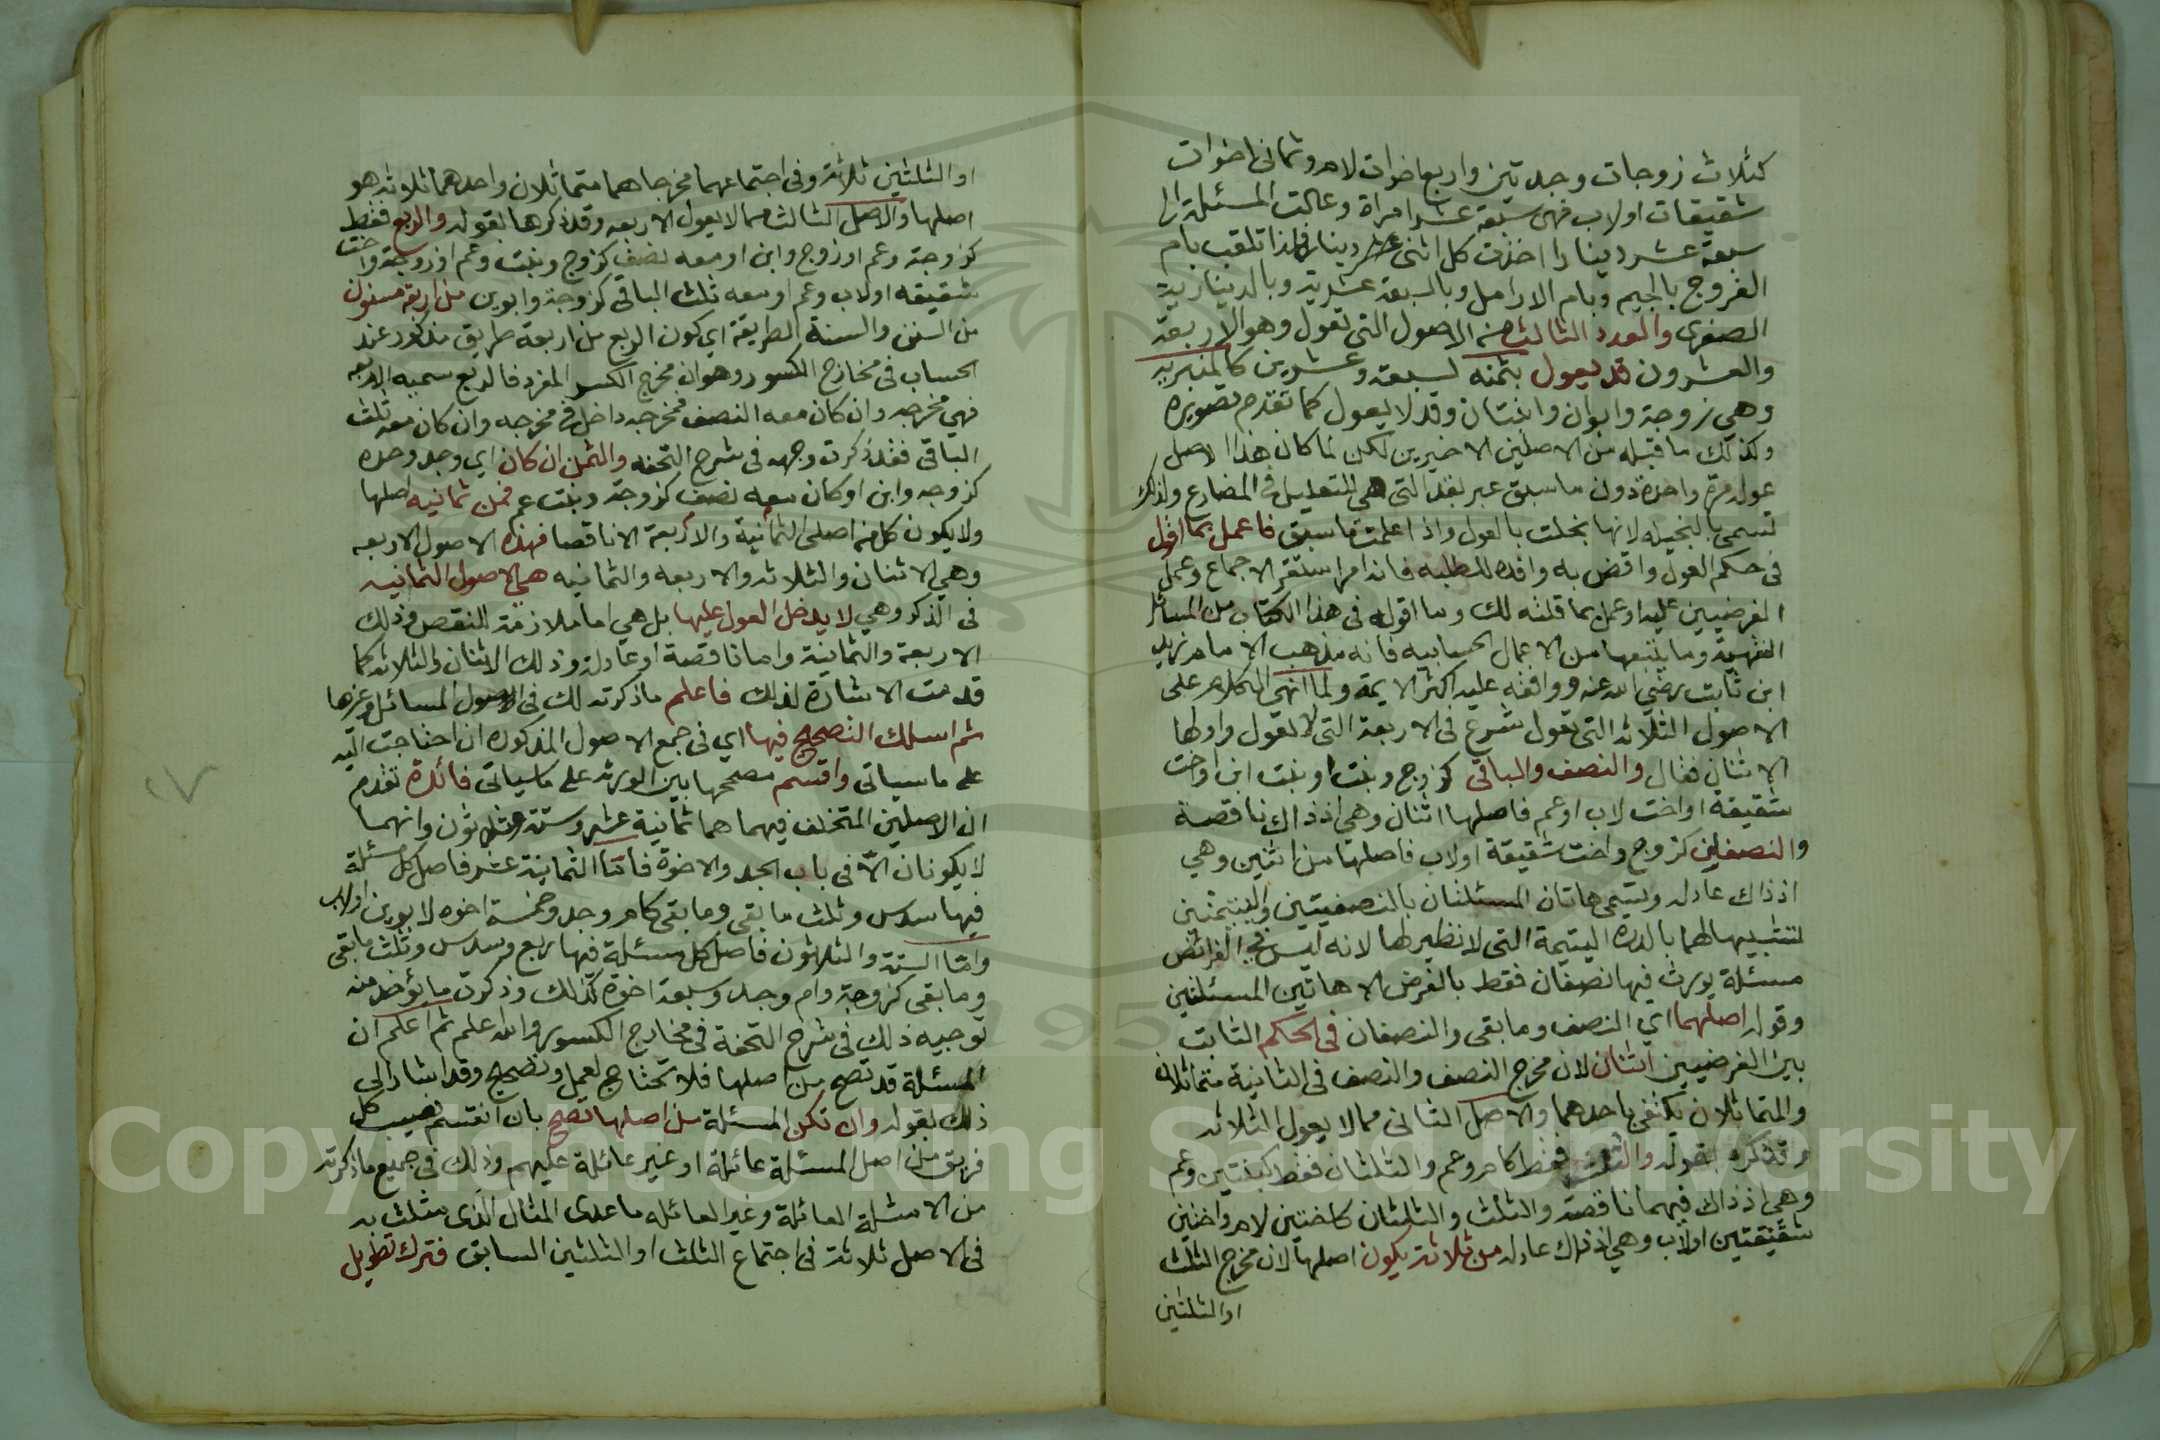 كثلاث زوجات وجدتين واربع اخوات لام وثماني اخوات
شقيقات اولاب فهن سبعة عشر امراة وعالت المسئلة الى
سبعة عشر دينارا اخذت كل انثى دينارا فلذا تلقب بام
الفروج بالجيم وبام الارامل وبالسبعة عشرية وبالدينارية
الصغرى والعدد الثالث من الاصول التي تعول وهو الاربعة
والعشرون قد يعول بثمنه لسبعة وعشرين كالمنبريه
وهي زوجة وابوان وابنتان وقد لا يعول كما تقدم تصويره
وكذلك ما قبله من الاصلين الاخيرين لكن لما كان هذا الاصل
عوله مرة واحدة دون ما سبق عبر بقد التي هي للتقليل في المضارع ولذلك
تسمى بالبخيله لانها بخلت بالعول واذا علمت ما سبق فاعمل بما اقول
في حكم العول واقض به وافده للطلبه فانه امر استقر الاجماع وعمل
الفرضيين عليه اوعمل بما قلته لك وما اقوله في هذا الكتاب من المسائل
الفقهية وما يتبعها من الاعمال الحسابيه فانه مذهب الامام زيد
ابن ثابت رضي الله عنه ووافقه عليه اكثر الايمة ولما انهى الكلام على
الاصول الثلاثه التي تعول شرع في الاربعة التي لا تعول واولها
الاثنان فقال والنصف والباقي كزوج وبنت او بنت ابن او اخت
شقيقة او اخت لاب او عم فاصلها اثنان وهي اذ ذاك ناقصة
والنصفان كزوج واخت شقيقة اولاب فاصلها من اثنين وهي
اذ ذاك عادله وتسمى هاتان المسئلتان بالنصفيتين واليتيمتين
لتشبيهها لهما بالدره اليتيمة التي لا نظير لها لانه ليس في الفرائض
مسئلة يورث فيها نصفان فقط بالفرض الا هاتين المسئلتين
وقوله اصلهما اي النصف وما بقى والنصفان في الحكم الثابت
بين الفرضيين اثنان لان مخرج النصف والنصف في الثانية متماثلان
والمتماثلان يكتفى باحدهما والاصل الثاني مما لا يعول الثلاثه
وقد ذكره بقوله والثلث فقط كام وعم والثلثان فقط كبنتين وعم
وهي اذ ذاك فيهما ناقصة والثلث والثلثان كاختين لام واختين
شقيقتين اولاب وهي اذ ذاك عادله من ثلاثة يكون اصلها لان مخرج الثلث
او الثلثين
او الثلثين ثلاثة وفي اجتماعهما مخرجاهما متماثلان واحدهما ثلاثه هو
اصلها والاصل الثالث مما لا يعول الاربعه وقد ذكرها بقوله والربع فقط
كزوجة وعم او زوج وابن او معه نصف كزوج وبنت وعم او زوجة واخت
شقيقه اولاب وعم او معه ثلث الباقي كزوجة وابوين من اربعة مسنون
من السنن والسنة الطريقة اي كون الربع من اربعة طريق مذكور عند
الحساب في مخارج الكسور وهو ان مخرج الكسر المفرد فالربع سميه الاربعه
فهي مخرجه وان كان معه النصف فمخرجه داخل في مخرجه وان كان معه ثلث
الباقي فقد ذكرت وجهه في شرح التحفه والثمن ان كان اي وجد وحده
كزوجه وابن او كان معه نصف كزوجة وبنت عم فمن ثمانيه اصلها
ولا يكون كل من اصلى الثمانية والاربعة الا ناقصا فهذه الاصول الاربعه
وهي الاثنان والثلاثه والاربعه والثمانيه هي الاصول الثمانيه
في الذكر وهي لا يدخل العول عليها بل هي اما ملازمة للنقص وذلك
الاربعة والثمانية واما ناقصة او عادلة وذلك الاثنان والثلاثه كما
قدمت الاشارة لذلك فاعلم ما ذكرته لك في اصول المسائل وغيرها
ثم اسلك التصحيح فيها اي في جمع الاصول المذكوره ان احتاجت اليه
على ما سياتي واقسم مصححها بين الورثه على ما سياتي فائدة تقدم
ان الاصلين المتخلف فيهما هما ثمانية عشر وستة وثلاثون وانهما
لا يكونان الا في باب الجد والاخوة فاما الثمانية عشر فاصل كل مسئلة
فيها سدس وثلث ما بقي وما بقي كام وجد وخمسة اخوه لابوين اولاب
واما الستة والثلاثون فاصل كل مسئلة فيها ربع وسدس وثلث ما بقى
وما بقى كزوجة وام وجد وسبعة اخوة كذلك وذكرت ما يؤخذ منه
توجيه ذلك في شرح التحفة في مخارج الكسور والله علم ثم اعلم ان
المسئلة قد تصح من اصلها فلا تحتاج لعمل وتصحيح وقد اشار الى
ذلك بقوله وان تكن المسئلة من اصلها تصح بان انقسم نصيب كل
فريق من اصل المسئلة عائلة او غير عائلة عليهم وذلك في جميع ما ذكرته
من الامثلة العائلة وغير العائله ما عدى المثال الذى مثلت به
في الاصل ثلاثة في اجتماع الثلث او الثلثين السابق فترك تطويل
Copyright © King Saud University
1957